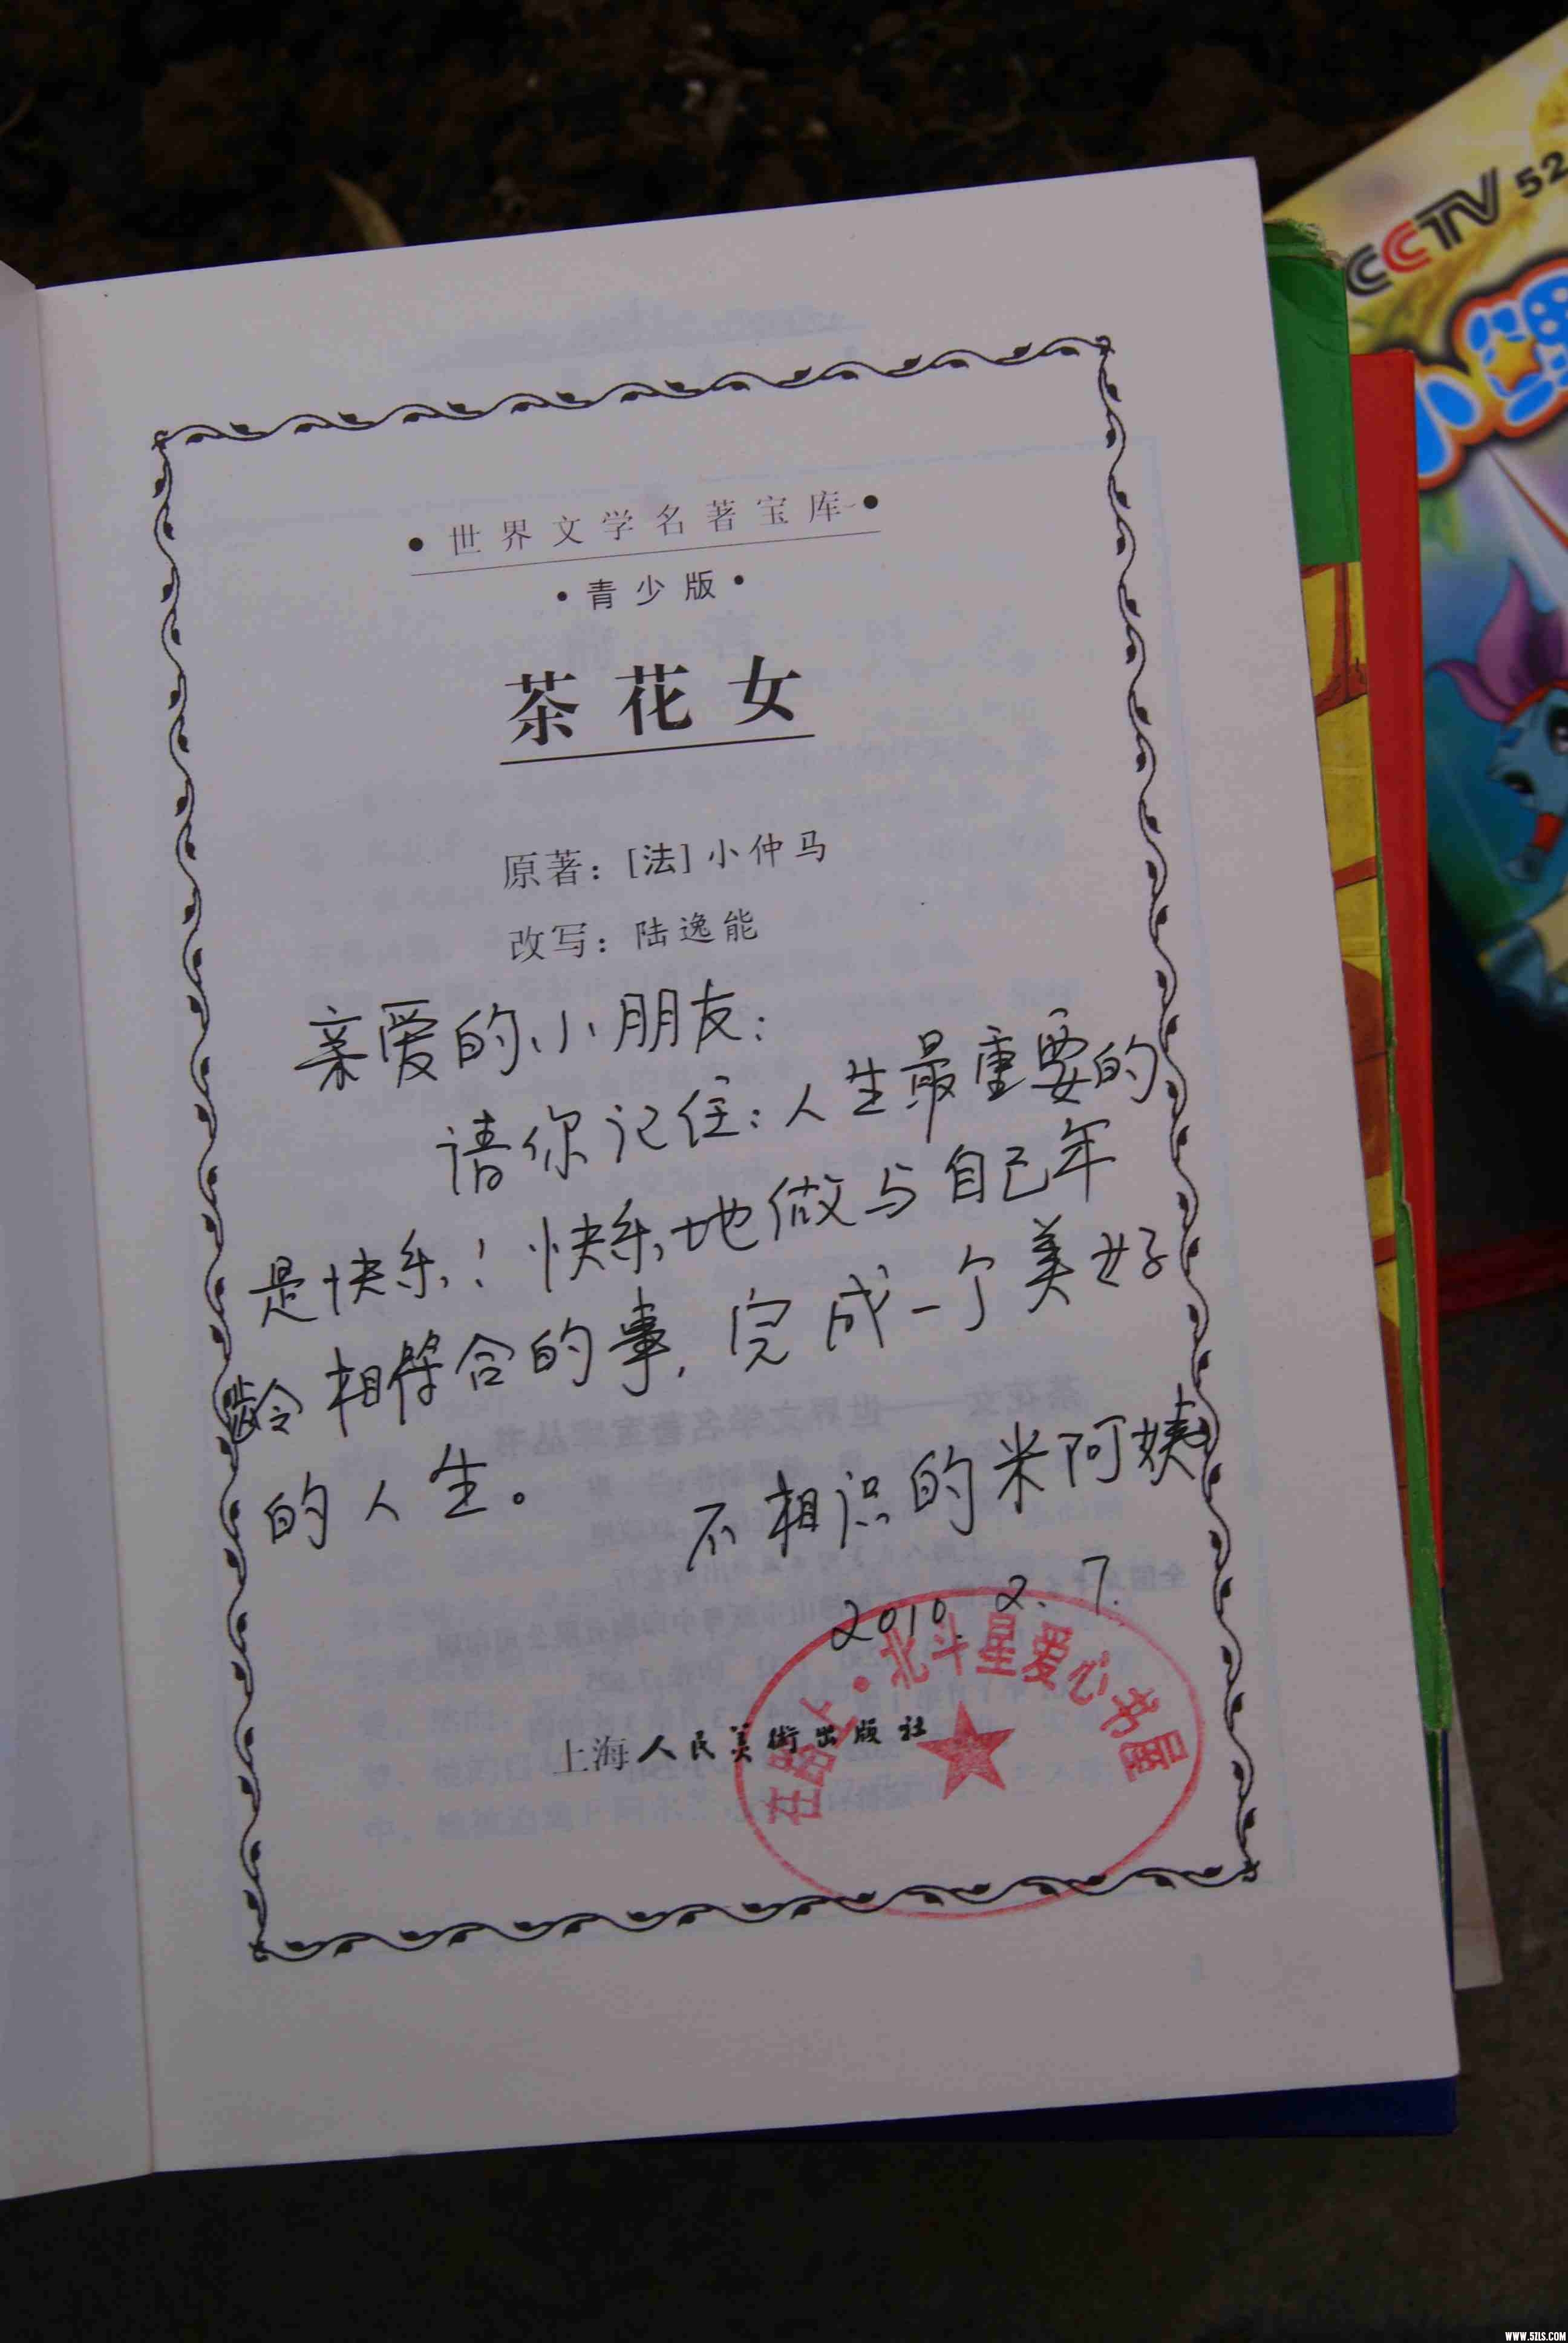 CCTV 52
小
•世界文学名著宝库•
•青少版•
茶花女
原著:[法]小仲马
改写:陆逸能
亲爱的小朋友:
请你记住:人生最重要的
是快乐!快乐地做与自己年
龄相符合的事,完成一个美好
的人生。
不相识的米阿姨
2010.2.7.
在路上•北斗星爱心书屋
上海人民美術出版社
WWW.5ZLS.COM